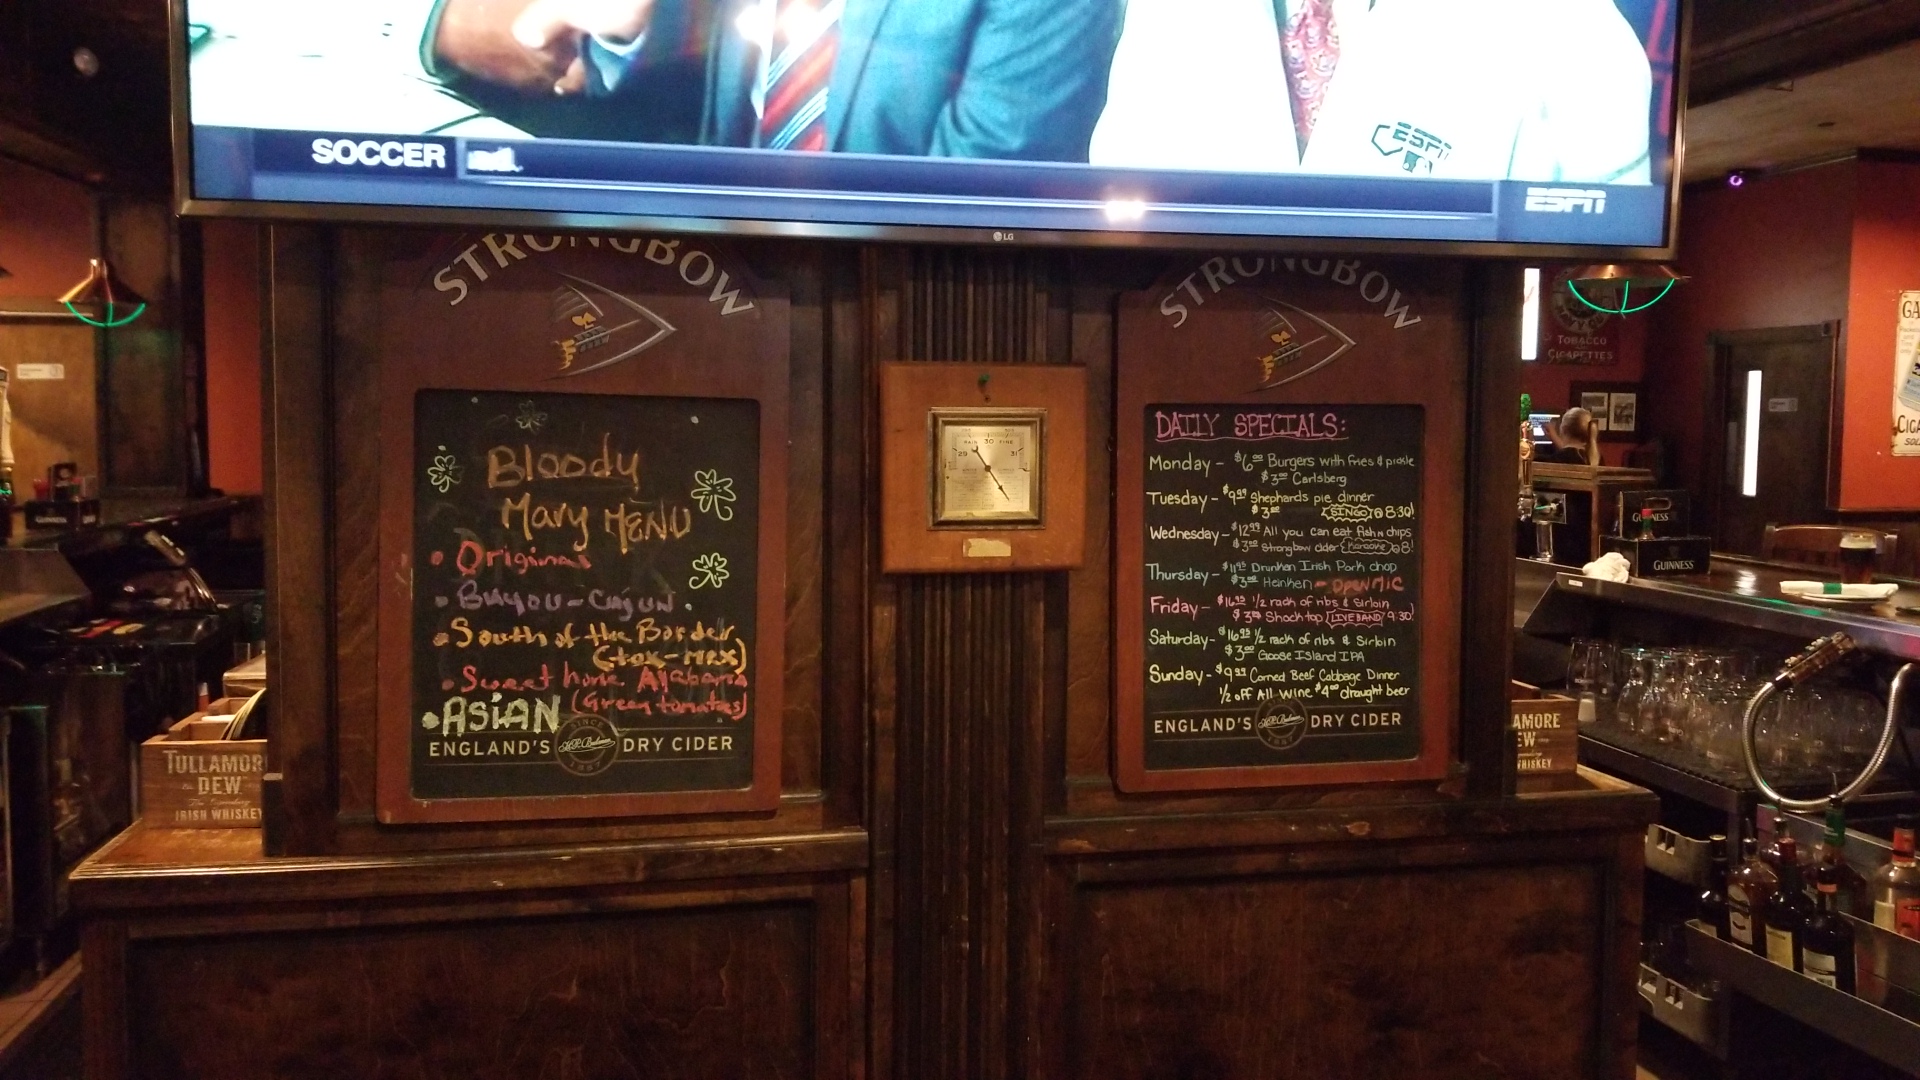 SOCCER
ESPN
ESPN
LG
STRONGBOW
Bloody
Mary MENU
• Original
• Bayou-Cajun
• South of the Border
(tex-mex)
• Sweet home Alabama
(Green tomatoes)
• ASIAN
SINCE
1887
ENGLAND'S DRY CIDER
RAIN 30 FINE
29 31
STRONGBOW
DAILY SPECIALS:
Monday - $6.00 Burgers with fries & pickle
$3.00 Carlsberg
Tuesday - $9.99 Shephards pie dinner
$3.00 SINGO @ 8:30!
Wednesday - $12.99 All you can eat fish n chips
$3.00 Strongbow cider Karaoke @ 8!
Thursday - $11.95 Drunken Irish Pork chop
$3.00 Heinken - OPEN MIC
Friday - $16.95 1/2 rack of ribs & Sirloin
$3.00 Shocktop LIVE BAND 9:30!
Saturday - $16.95 1/2 rack of ribs & Sirloin
$3.00 Goose Island IPA
Sunday - $9.99 Corned Beef Cabbage Dinner
1/2 off All Wine $4.00 draught beer
ENGLAND'S DRY CIDER
TULLAMORE
DEW
IRISH WHISKEY
AMORE
EW
WHISKEY
TOBACCO
CIGARETTES
GUINNESS
GUINNESS
GUINNESS
GA
CIGA